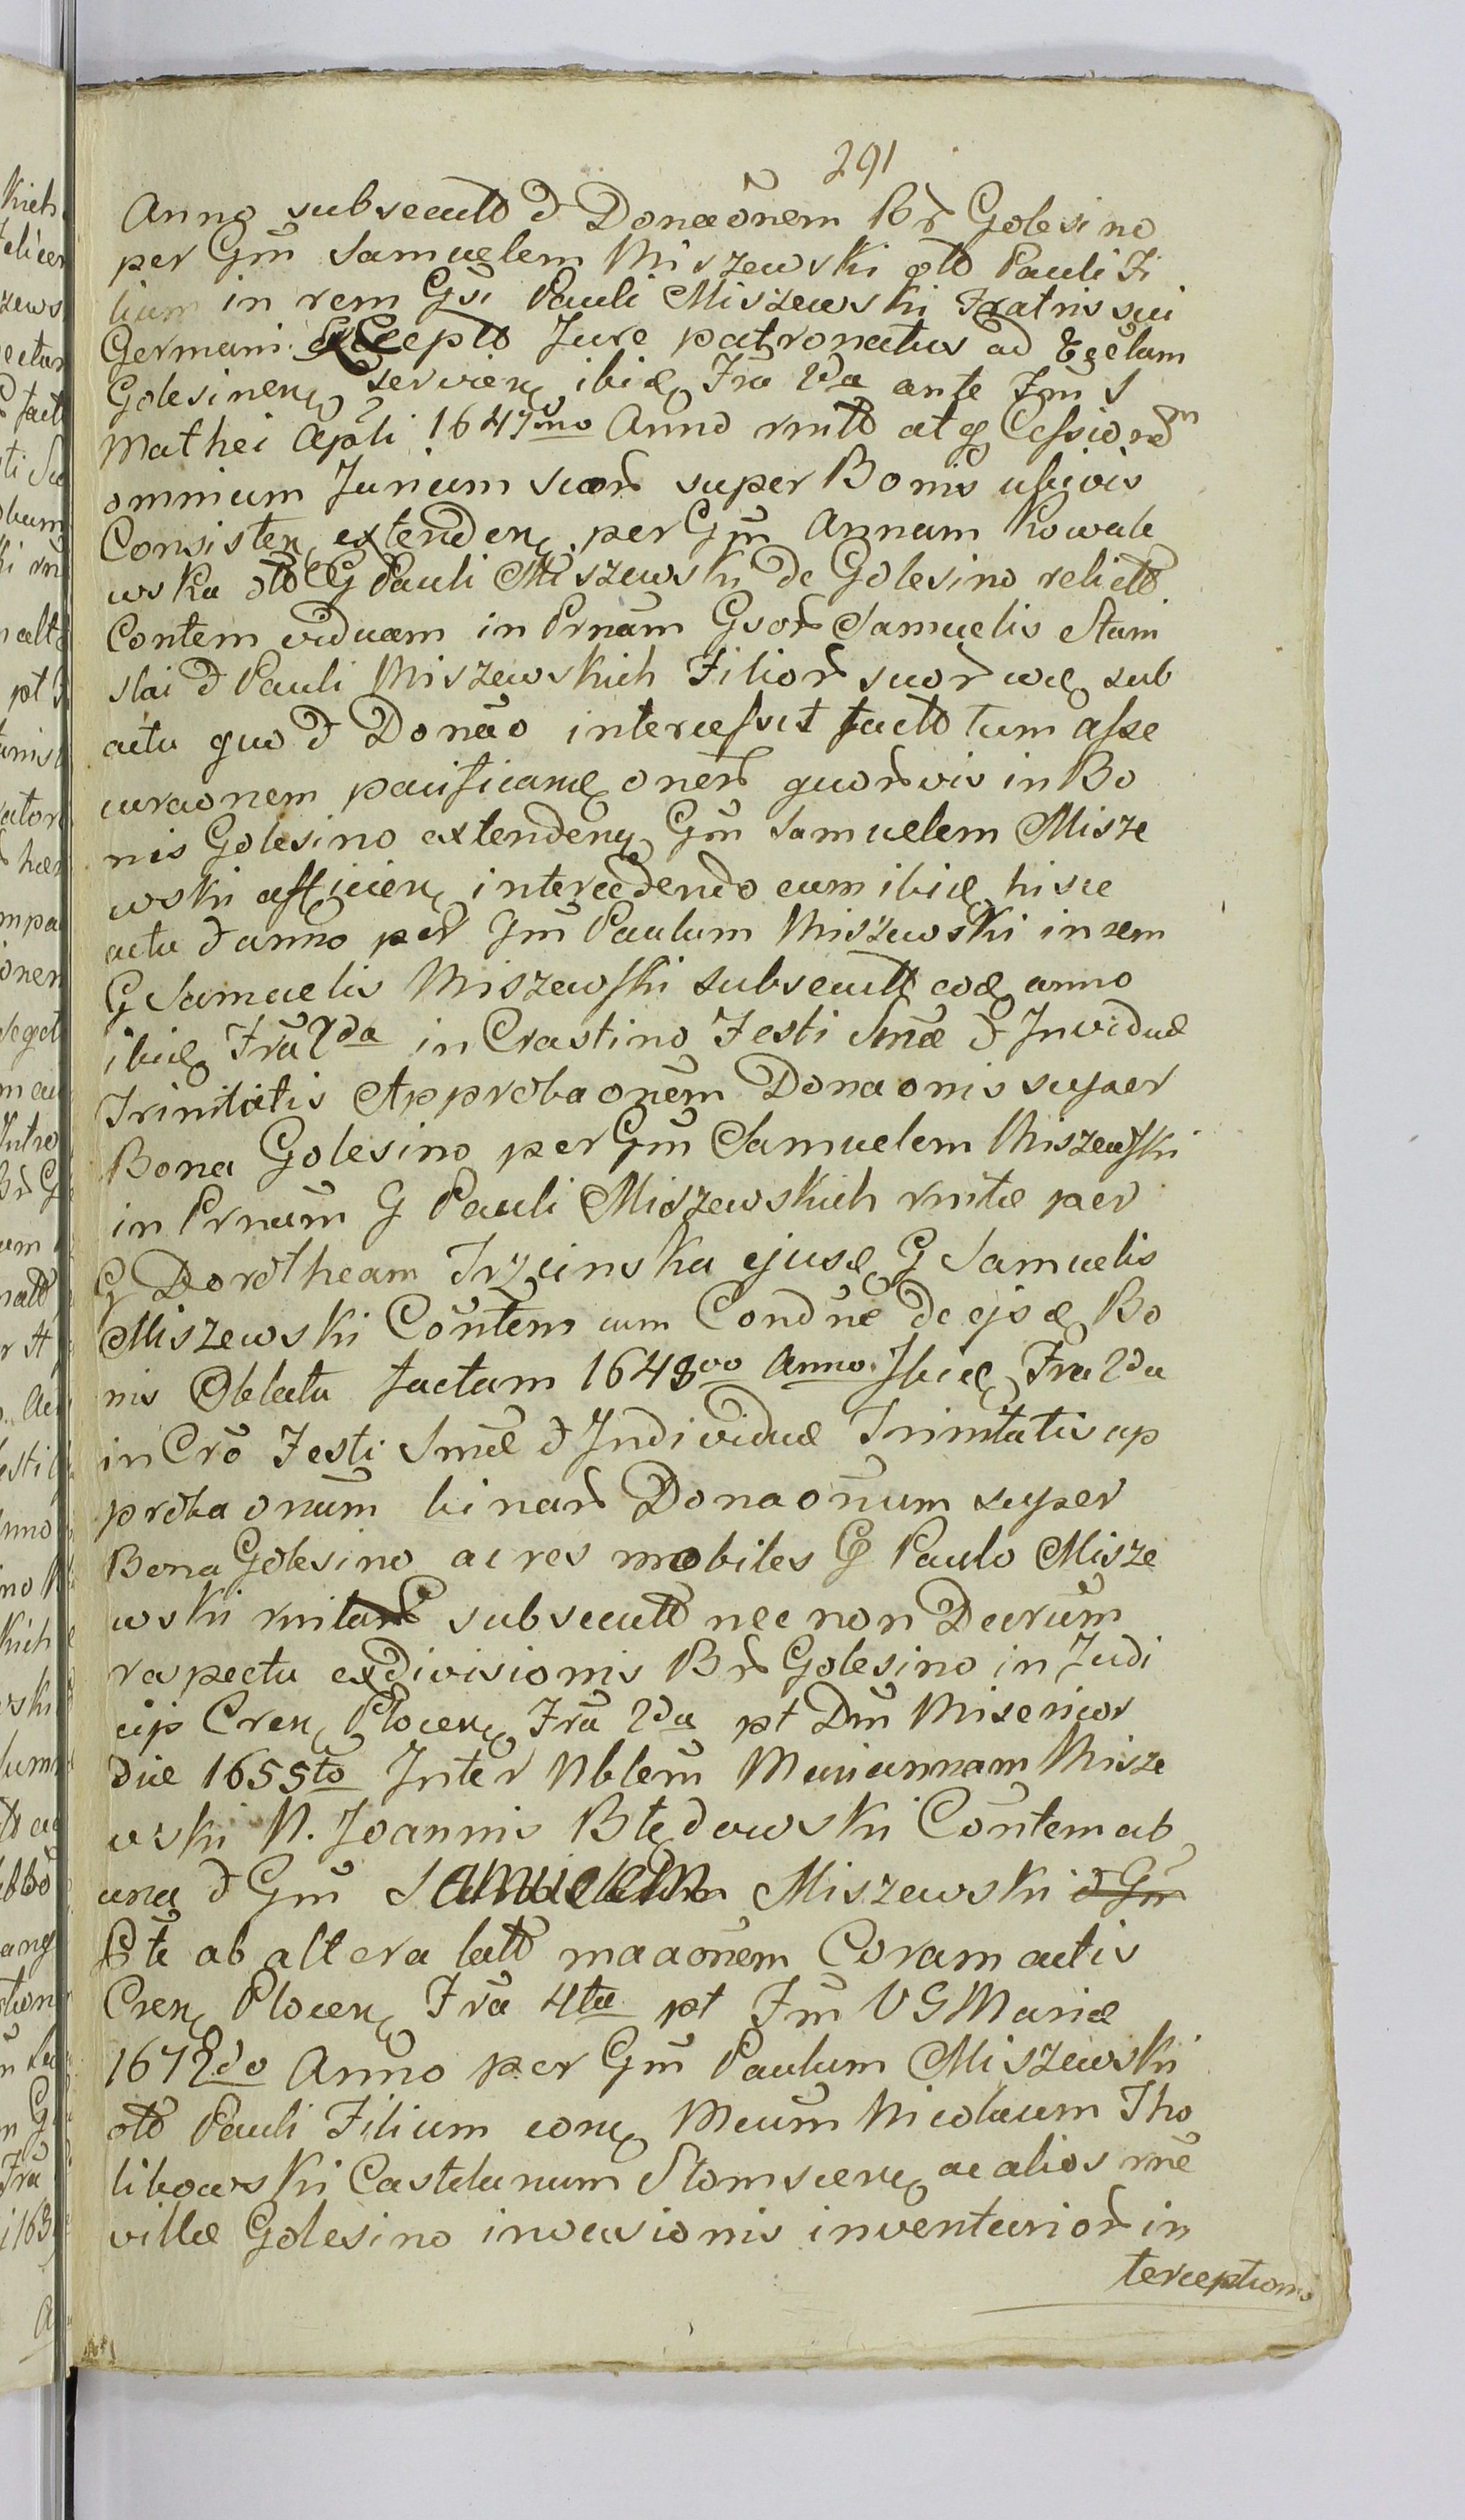 291
Anno subsecuto & Donaõnem Bor Golesino
per Gm̃ Samuelem Miszewski olỡ Pauli Fi
lium in rem Gsi Pauli Miszewski Fratris sui
Germani Excepto Jure patronatus ad Ecclam
Golesinen servien ibid Fra 2da ante Fm S
Mathei Apli 1647mo Anno rnito atq Cessionem
omnium Jurium suor super Bonis ubivis
Consisten extenden per Gm̃ Annam Kowale
wska olo G Pauli Miszewski de Golesino relicto
Contem viduam in Prnam Gsor Samuelis Stani
slai & Pauli Miszewskich Filior suor wē sub
actu quo & Donao intercessit facto tum asse
curaonem pacificane oner quorvis in Bo
nis Golesino extenden Gm̃ Samuelem Misze
wski afficien intercedendo eum ibid hisce
actu & anno per Gm̃ Paulum Miszewski in rem
G Samuelis Miszewski subsecuto eod anno
ibid Fra 2da in Crastino Festi Smæ & Inviduæ
Trinitatis Approbaonem Donaonis super
Bona Golesino per Gm̃ Samuelem Miszewski
in Prnam G Pauli Miszewskich rnitæ per
G Dorotheam Trzcinska ejusd G Samuelis
Miszewski Contem cum Condne de ejsd Bo
nis Oblata factam 1648vo Anno Ibid Fra 2da
in Cro Festi Smæ & Individuæ Trinitatis ap
probaonum binar Donaonum super
Bona Golesino ac res mobiles G Paulo Misze
wski rnitar subsecuto nec non Decrum
respectu exdivisionis Br Golesino in Judi
cio Cren Plocen Fra 2da pt Dm̃ Misericor
diæ 1655to Inter Nblem Mariannam Misze
wski N. Joannis Błędowski Contem ab
una & Gm̃ Samuelem Miszewski & Gm̃
Pte ab altera lato maaonem Coram actis
Cren Plocen Fra 4ta pt Fm V G Mariæ
1672do Anno per Gm̃ Paulum Miszewski
olo Pauli Filium con Mcum Nicolaum Tho
libowski Castelanum Slonscen ac alios rne
villæ Golesino invasionis inventarior in
terceptionis